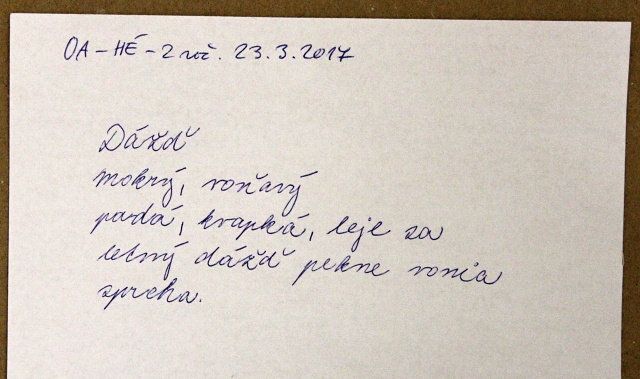 OA - HÉ - 2 roč. 23.3.2017
Dážď
mokrý, voňavý
padá, kvapká, leje sa
letný dážď pekne vonia
sprcha.